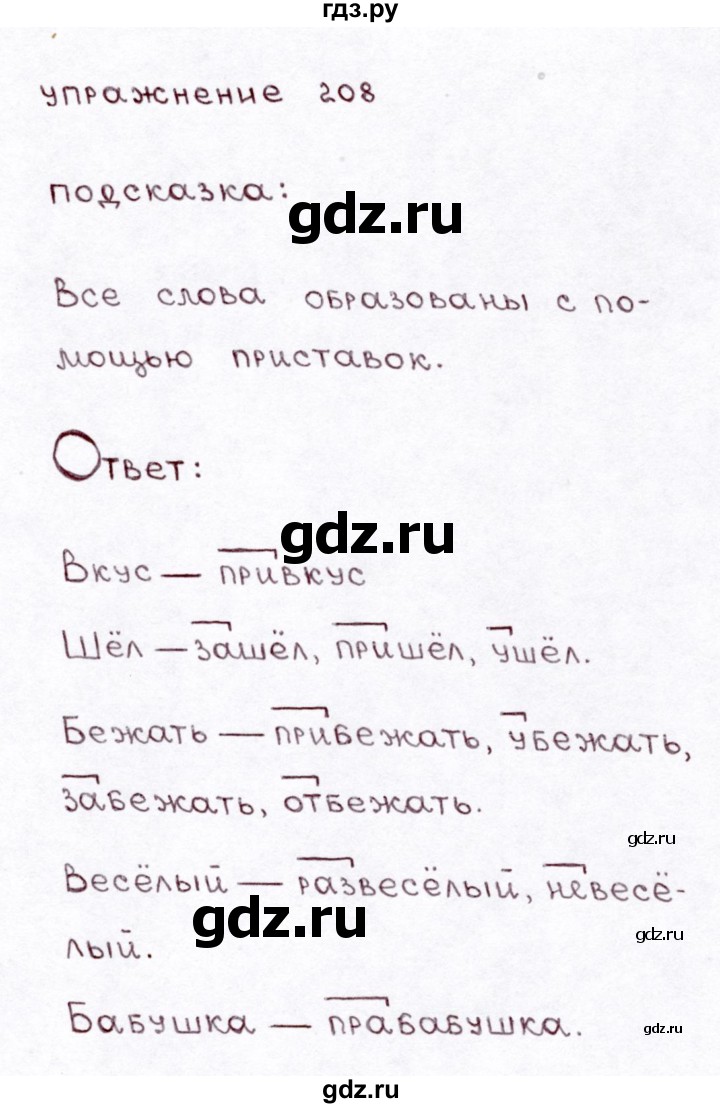 гдз.ру
упражнение 208
подсказка:
gdz.ru
Все слова образованы с по-
мощью приставок.
Ответ:
gdz.ru
Вкус — привкус
Шёл — зашёл, пришёл, ушёл.
Бежать — прибежать, убежать,
забежать, отбежать.
gdz.ru
Весёлый — развесёлый, невесё-
gdz.ru
gdz.ru
лый.
Бабушка — прабабушка.
gdz.ru
gdz.ru